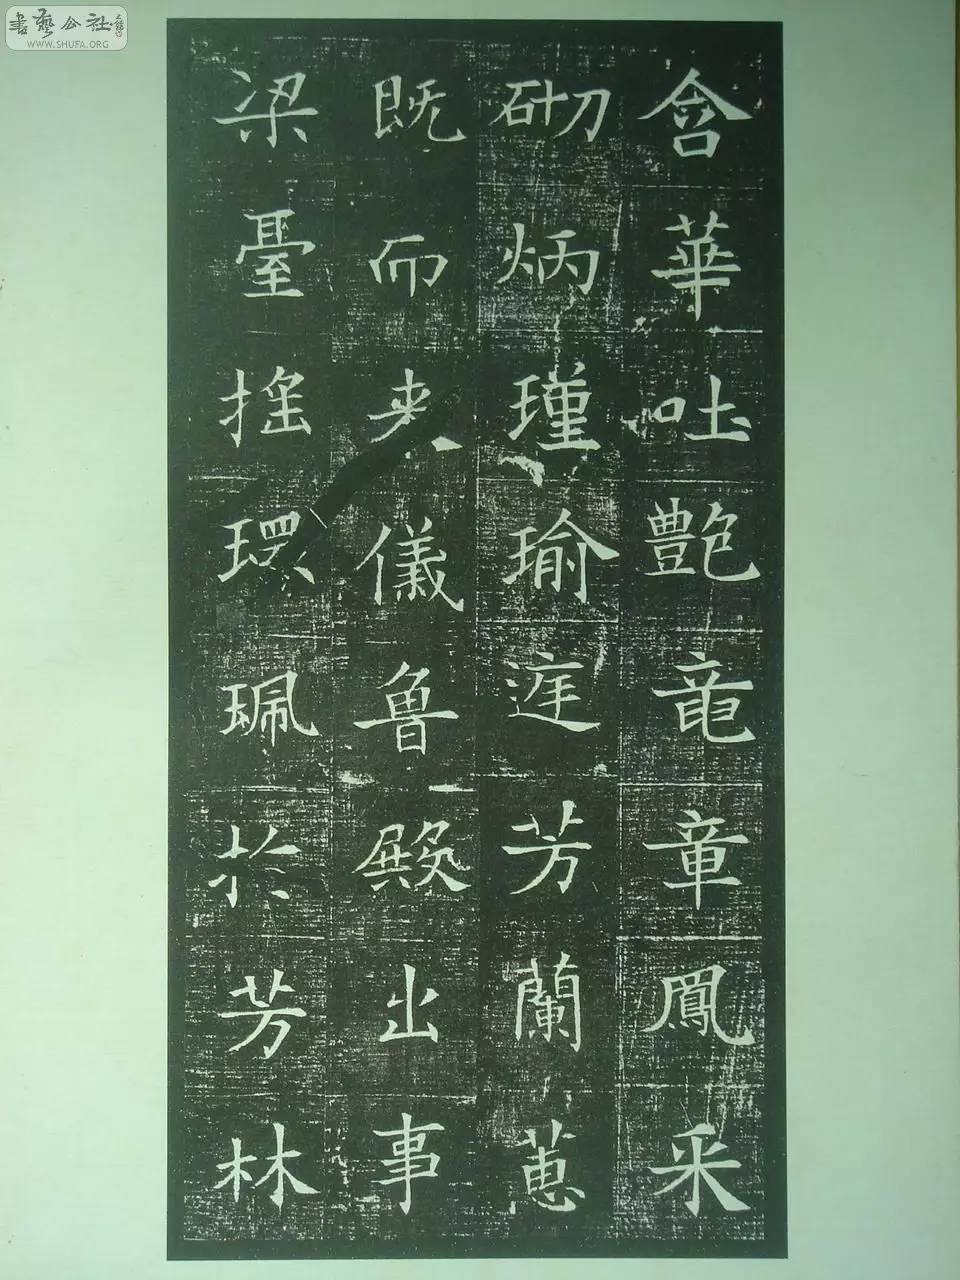 書藝公社
WWW.SHUFA.ORG
含華吐艷竜章鳳采
砌炳瑾瑜庭芳蘭蕙
既而来儀魯殿出事
梁臺搖環珮於芳林